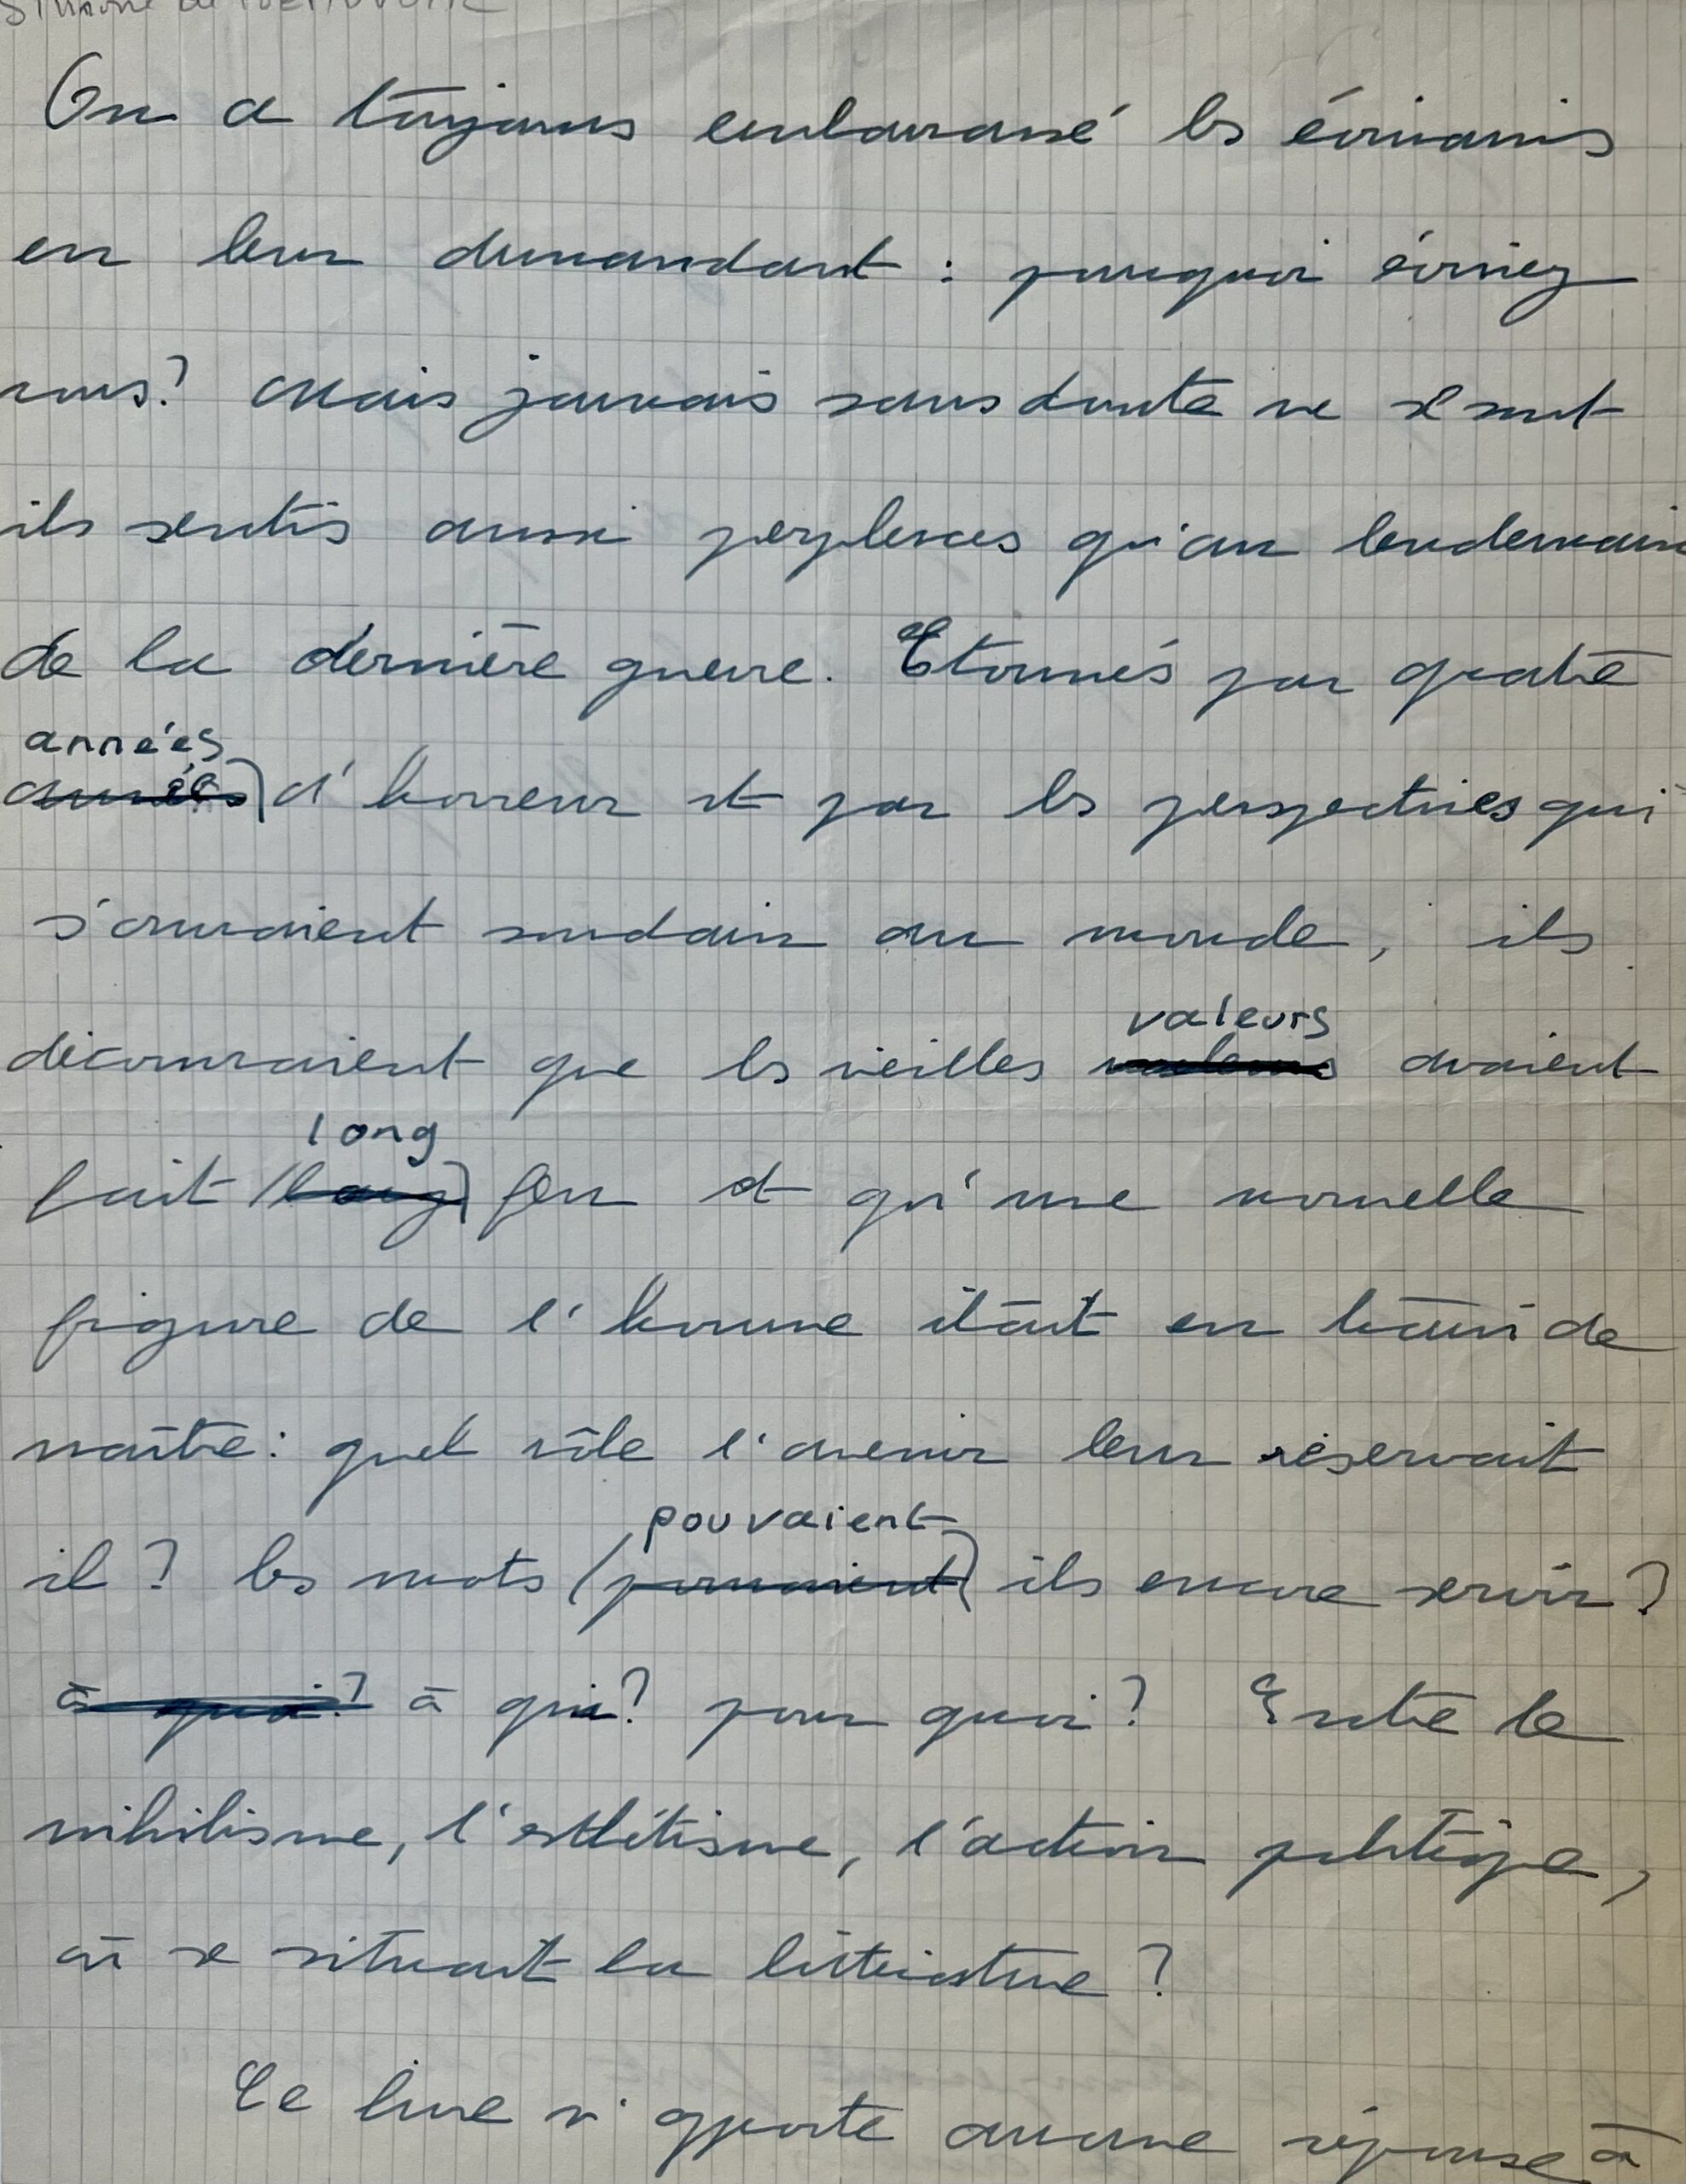 Simone de Beauvoir
On a toujours embarrassé les écrivains
en leur demandant : pourquoi écrivez
vous? Mais jamais sans doute ne se sont
ils sentis aussi perplexes qu'au lendemain
de la dernière guerre. Etonnés par quatre
années
années d'horreur et par les perspectives qui
s'ouvraient soudain au monde, ils
valeurs
découvraient que les vieilles valeurs avaient
long
fait (long) feu et qu'une nouvelle
figure de l'homme était en train de
naître : quel rôle l'avenir leur réservait
pouvaient
il ? les mots (pouvaient) ils encore servir ?
à quoi? à qui? pour quoi? Entre le
nihilisme, l'esthétisme, l'action politique,
où se situait la littérature ?
Ce livre n'apporte aucune réponse à